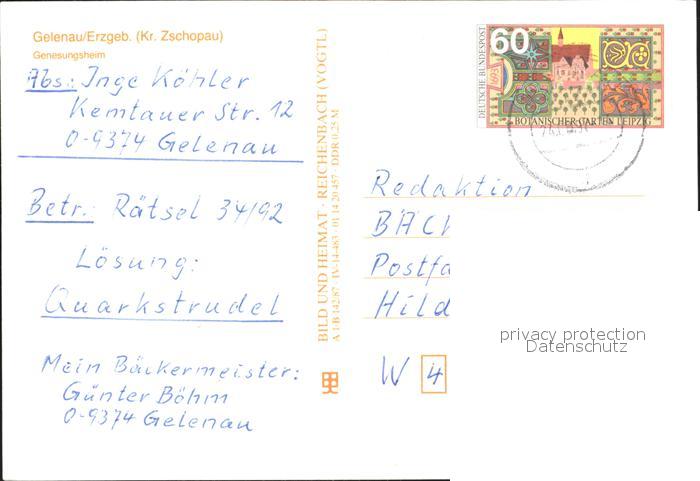 Gelenau/Erzgeb. (Kr. Zschopau)
Genesungsheim
Abs.: Inge Köhler
Kemtauer Str. 12
O-9374 Gelenau
Betr.: Rätsel 34/92
Lösung:
Quarkstrudel
Mein Bäckermeister:
Günter Böhm
O-9374 Gelenau
BILD UND HEIMAT · REICHENBACH (VOGTL)
A 1/B 142/87 · IV-14-483 · 01 14 20 457 · DDR 0,25 M
DEUTSCHE BUNDESPOST
60
1693
BOTANISCHER GARTEN LEIPZIG
Redaktion
BÄC
Postfa
Hild
W 4
privacy protection
Datenschutz